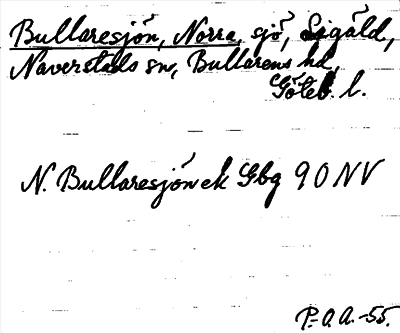 Bullaresjön, Norra, sjö, Sigåld,
Naverstads sn, Bullarens hd,
Göteb. l.
N. Bullaresjön ek Gbg 9 O NV
P.-O.A. -55.